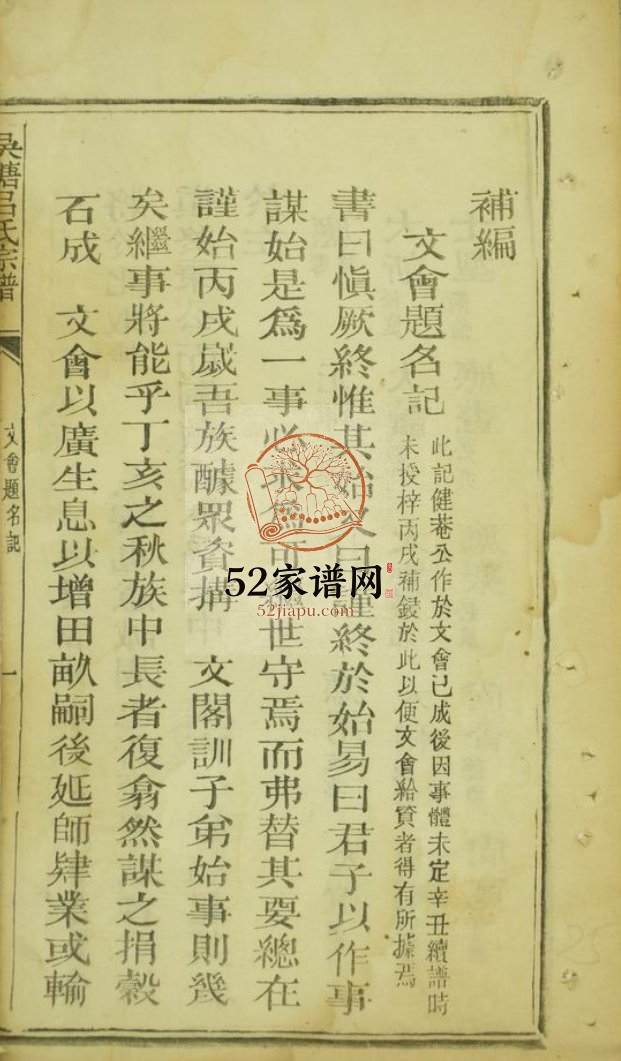 補編
文會題名記
此記健菴公作於文會已成後因事體未定辛丑續譜時
未授梓丙戌補鋟於此以便文會給資者得有所據焉
書曰慎厥終惟其始又曰謹終於始易曰君子以作事
謀始是爲一事必求爲可世守焉而弗替其要總在
謹始丙戌歲吾族醵眾資搆 文閣訓子弟始事則幾
矣繼事將能乎丁亥之秋族中長者復翕然謀之捐穀
石成 文會以廣生息以增田畝嗣後延師肄業或輸
吳塘呂氏宗譜
文會題名記
一
52家谱网
52jiapu.com